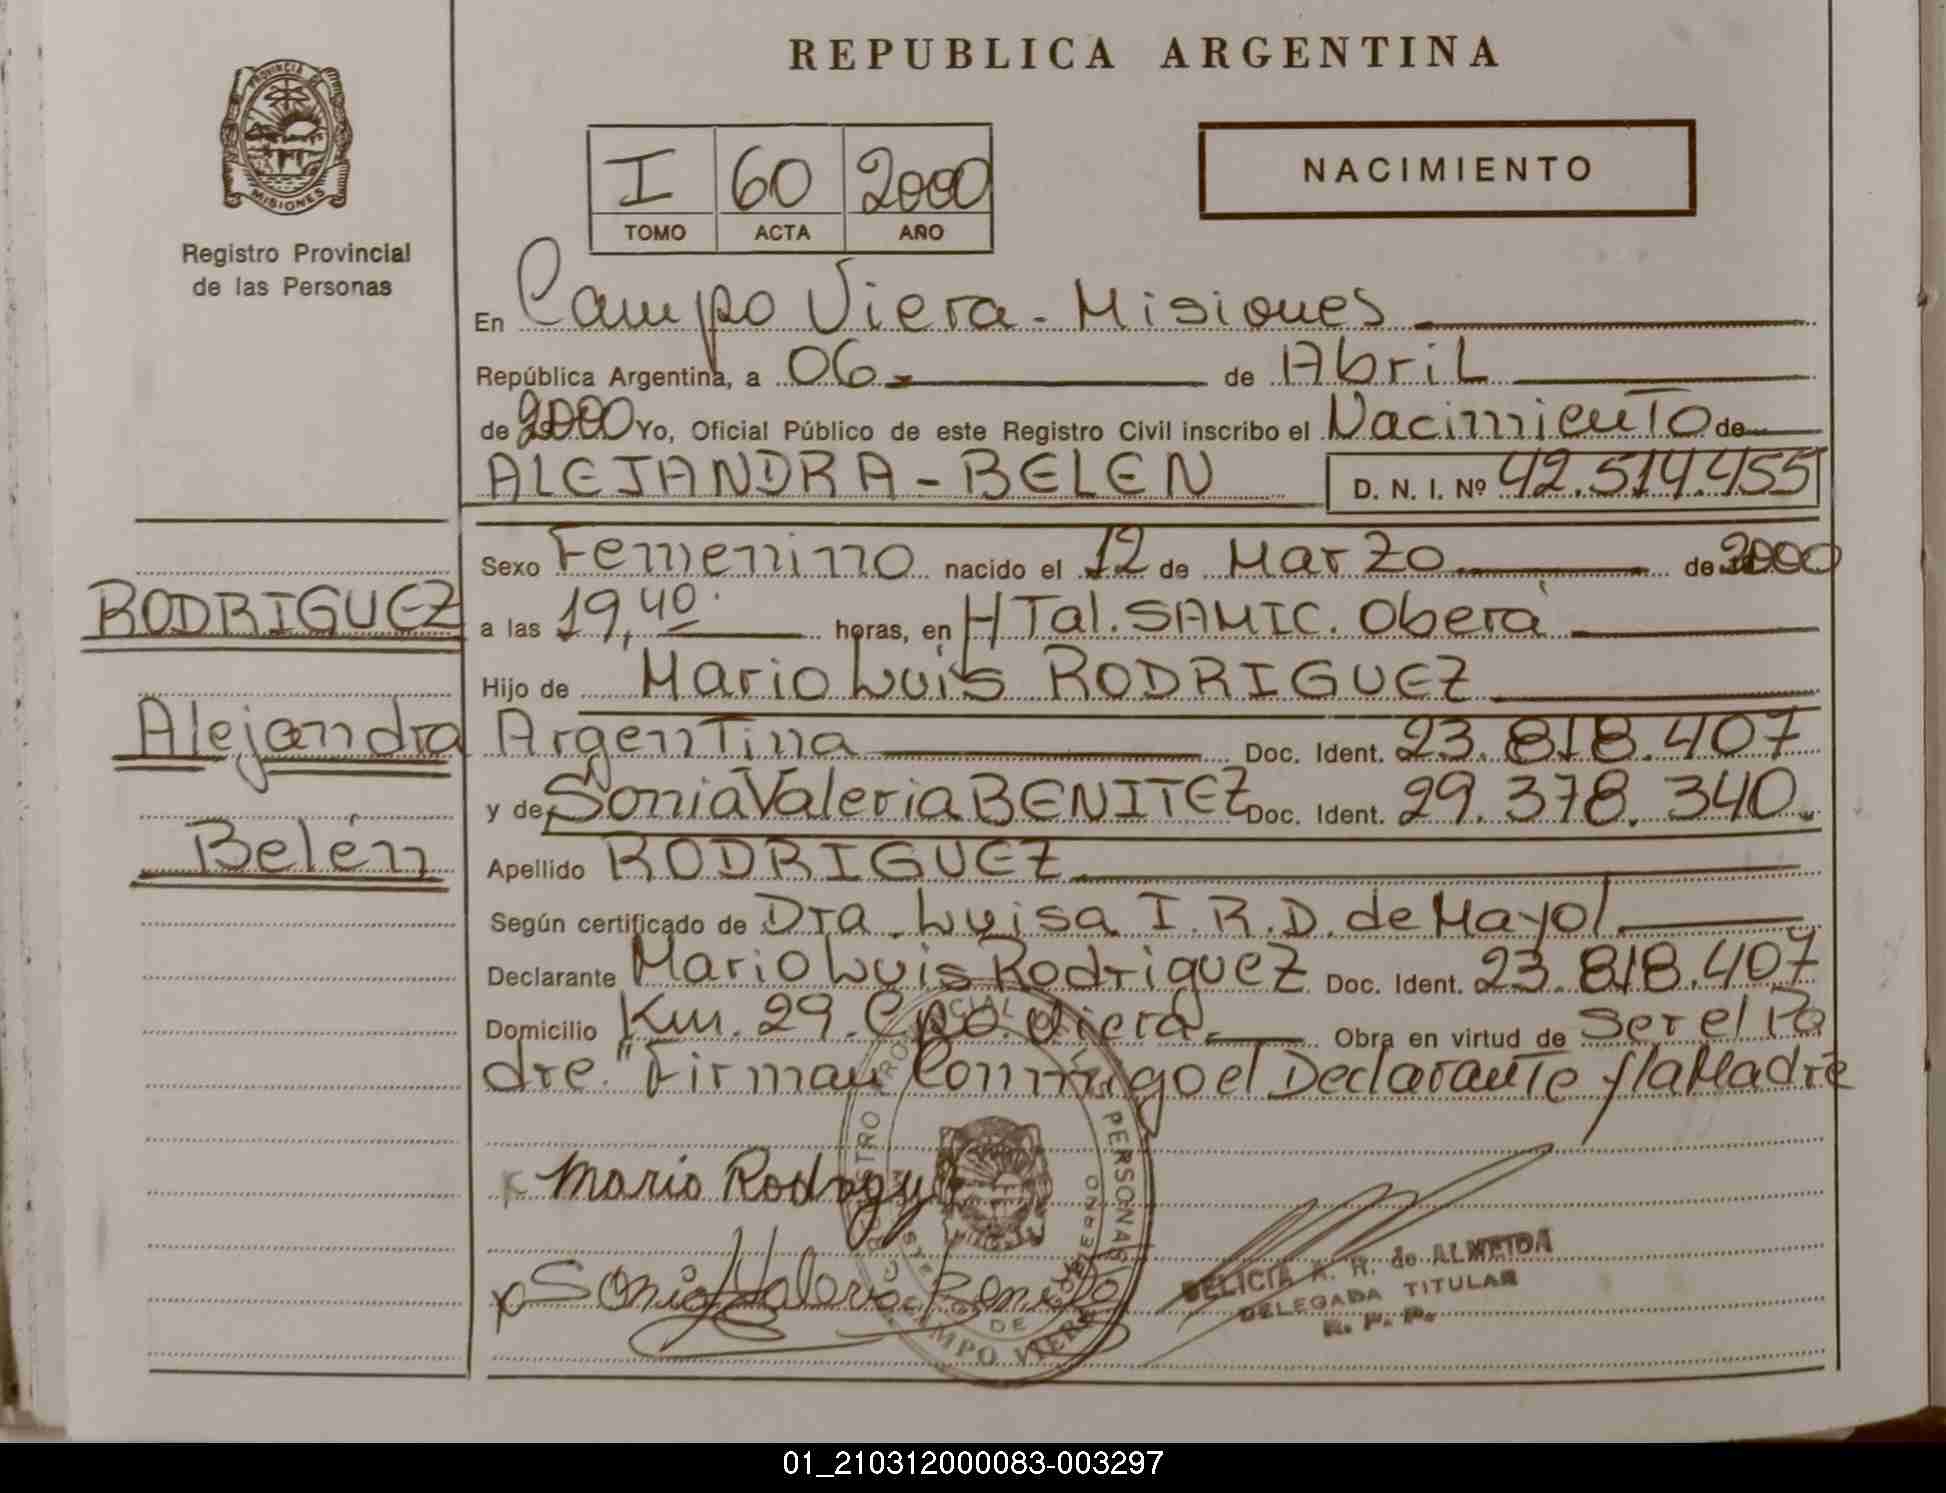 REPUBLICA ARGENTINA
PROVINCIA DE
MISIONES
Registro Provincial
de las Personas
I 60 2000
TOMO ACTA AÑO
NACIMIENTO
En Campo Viera - Misiones
República Argentina, a 06 de Abril
de 2000 Yo, Oficial Público de este Registro Civil inscribo el Nacimiento de
ALEJANDRA - BELEN D. N. I. Nº 42.514.455
Sexo Femenino nacido el 12 de Marzo de 2000
RODRIGUEZ
a las 19,40 horas, en HTal. SAMIC. Oberá
Hijo de Mario Luis RODRIGUEZ
Alejandra
Argentina Doc. Ident. 23.818.407
y de Sonia Valeria BENITEZ Doc. Ident. 29.378.340
Belén
Apellido RODRIGUEZ
Según certificado de Dra. Luisa I. R. D. de Mayol
Declarante Mario Luis Rodriguez Doc. Ident. 23.818.407
Domicilio Km. 29. Cpo. Viera Obra en virtud de ser el Pa
dre." Firman Conmigo el Declarante y la Madre
Mario Rodrigu
x Sonia Valeria Benite
PERSONAS
CAMPO VIERA
DELICIA R. H. de ALMEIDA
DELEGADA TITULAR
R. P. P.
01_210312000083-003297